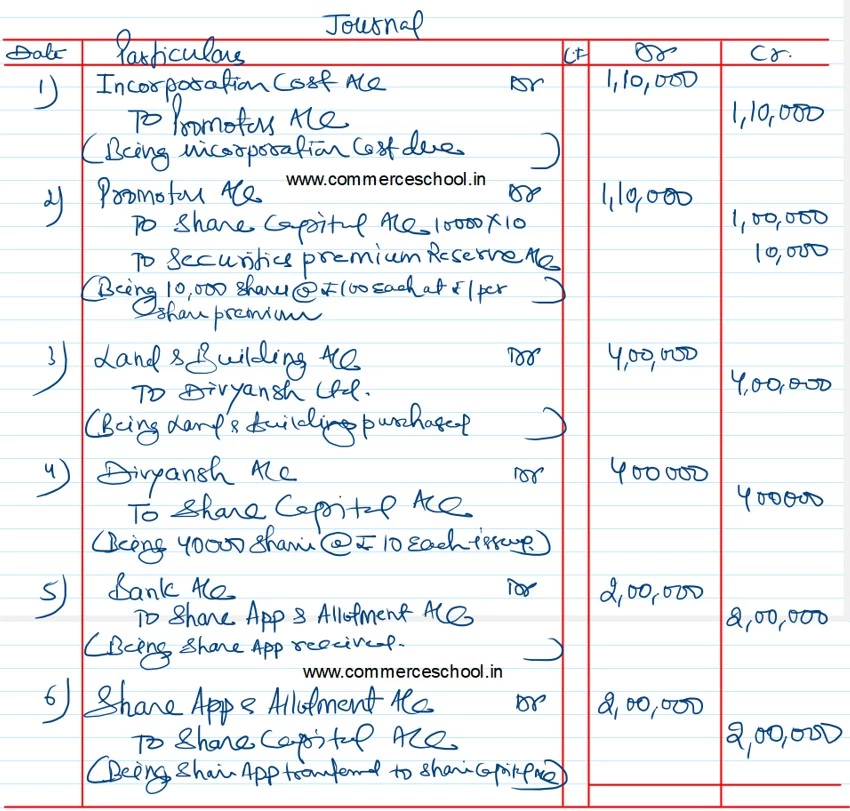 Journal
Date Particulars LF Dr Cr.
1) Incorporation Cost A/c Dr 1,10,000
To Promoters A/c 1,10,000
(Being incorporation Cost due)
www.commerceschool.in
2) Promoters A/c Dr 1,10,000
To Share Capital A/c 10000X10 1,00,000
To Securities premium Reserve A/c 10,000
(Being 10,000 Shares @ ₹100 each at ₹1 per)
Share premium
3) Land & Building A/c Dr 4,00,000
To Divyansh Ltd. 4,00,000
(Being Land & Building purchased)
4) Divyansh A/c Dr 400000
To Share Capital A/c 400000
(Being 40000 Share @ ₹ 10 each issue)
5) Bank A/c Dr 2,00,000
To Share App & Allotment A/c 2,00,000
(Being Share App received.)
www.commerceschool.in
6) Share App & Allotment A/c Dr 2,00,000
To Share Capital A/c 2,00,000
(Being Share App transferred to share capital A/c)